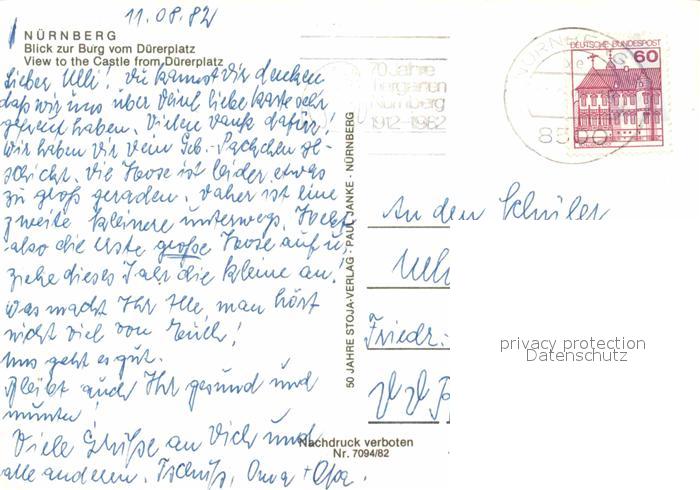 11.08.82
NÜRNBERG
Blick zur Burg vom Dürerplatz
View to the Castle from Dürerplatz
Lieber Ulli! Du kannst Dir denken
daß wir uns über Deine liebe Karte sehr
gefreut haben. Vielen Dank dafür!
Wir haben Dir Dein Geb.-Päckchen ge-
schickt. Die Hose ist leider etwas
zu groß geraden. Daher ist eine
zweite kleinere unterwegs.
also die erste große Hose auf u.
ziehe dieses Jahr die kleine an.
Was macht Ihr Alle, man hört
nicht viel von Euch!
Uns geht es gut.
Bleibt auch Ihr gesund und
munter!
Viele Grüße an Dich und
alle anderen. Tschüß, Oma + Opa.
50 JAHRE STOJA-VERLAG · PAUL JANKE · NÜRNBERG
Nachdruck verboten
Nr. 7094/82
70 Jahre
Tiergarten
Nürnberg
1912-1982
NÜRNBERG
8500
DEUTSCHE BUNDESPOST
60
An den Schüler
Ulli
Friedr.
privacy protection
Datenschutz